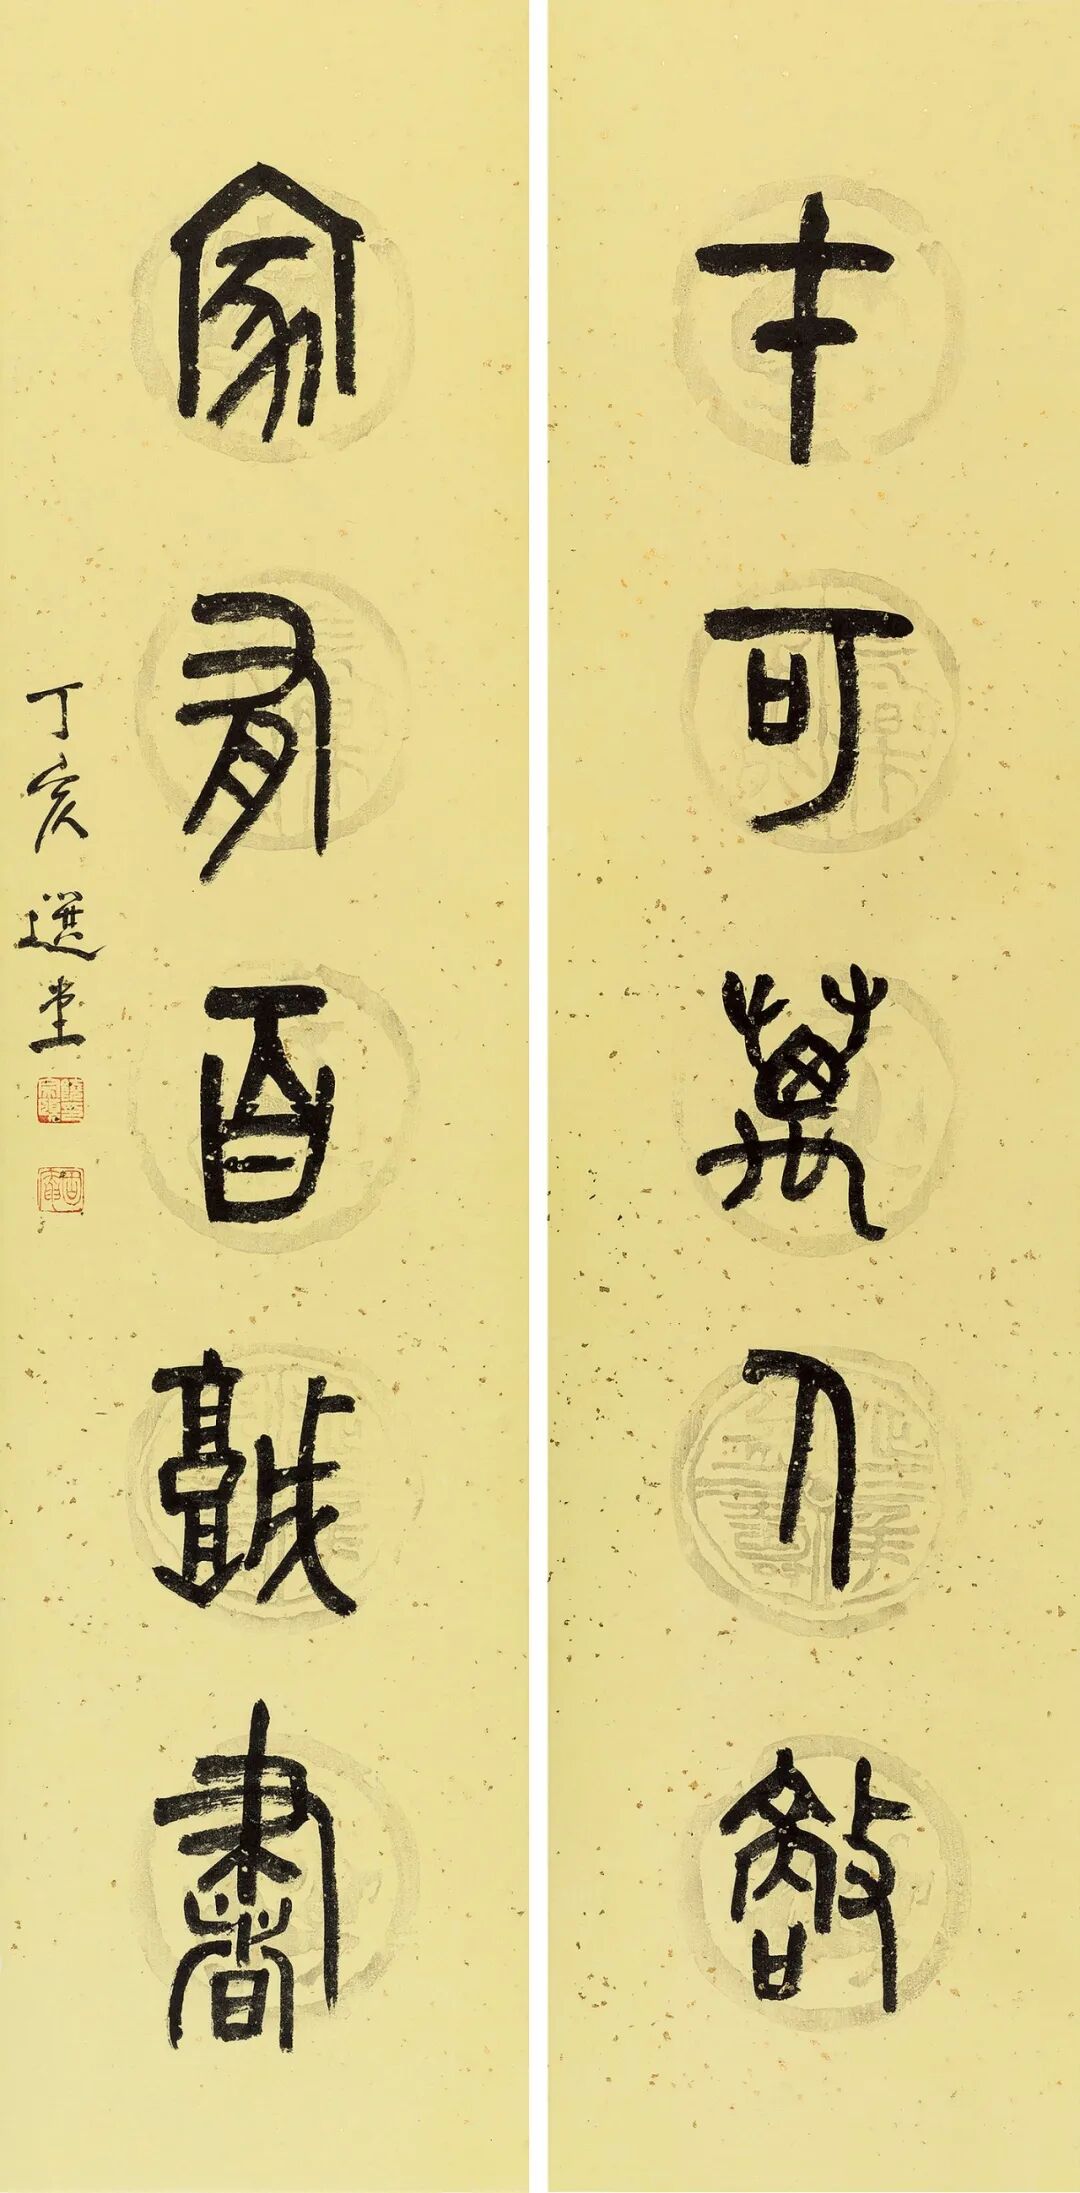 才可萬人敵
家有百城書
丁亥 選堂